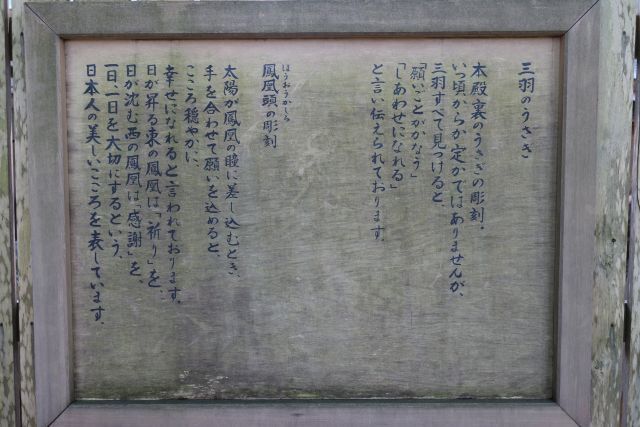 三羽のうさぎ
本殿裏のうさぎの彫刻・
いつ頃からか定かではありませんが、
三羽すべて見つけると、
「願いごとがかなう」
「しあわせになれる」
と言い伝えられております。
鳳凰頭の彫刻
ほうおうがしら
太陽が鳳凰の瞳に差し込むとき、
手を合わせて願いを込めると、
こころ穏やかに、
幸せになれると言われております。
日が昇る東の鳳凰は「祈り」を、
日が沈む西の鳳凰は「感謝」を、
一日、一日を大切にするという、
日本人の美しいこころを表しています。